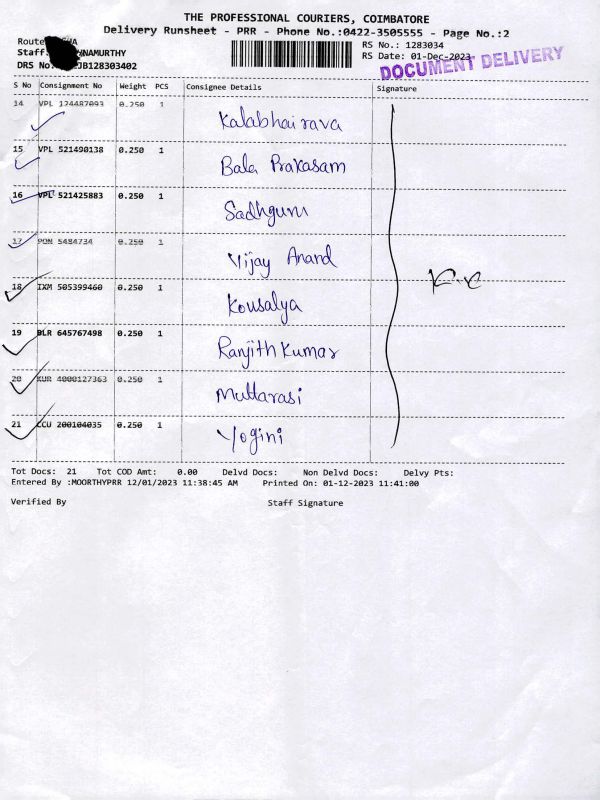 THE PROFESSIONAL COURIERS, COIMBATORE
Delivery Runsheet - PRR - Phone No.:0422-3505555 - Page No.:2
Route
RS No.: 1283034
Staff. NAMURTHY
RS Date: 01-Dec-2023
DRS No. JB128303402
DOCUMENT DELIVERY
S No Consignment No Weight PCS Consignee Details Signature
14 VPL 124487093 0.250 1 Kalabhairava
15 VPL 521490138 0.250 1 Bala Prakasam
16 VPL 521425883 0.250 1 Sadhguru
17 PON 5484734 0.250 1 Vijay Anand
18 IXM 505399460 0.250 1 Kousalya
19 BLR 645767498 0.250 1 Ranjith Kumar
20 KUR 4000127363 0.250 1 Muttarasi
21 CCU 200104035 0.250 1 Yogini
Tot Docs: 21 Tot COD Amt: 0.00 Delvd Docs: Non Delvd Docs: Delvy Pts:
Entered By :MOORTHYPRR 12/01/2023 11:38:45 AM Printed On: 01-12-2023 11:41:00
Verified By Staff Signature